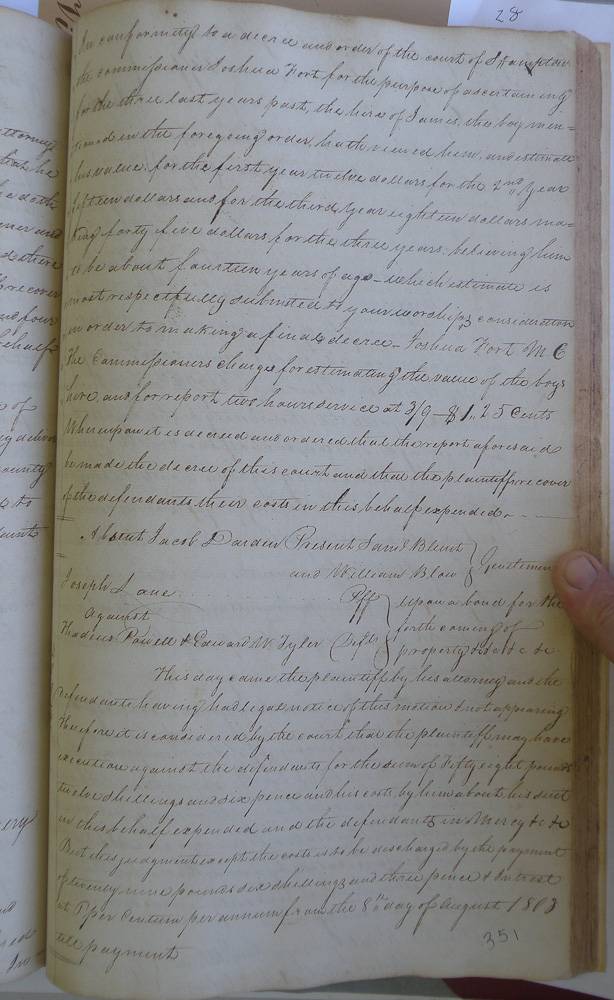 28
In conformity to a decree and order of the court of Southampton
the commissioner Joshua Fort for the purpose of ascertaining
for the three last years past, the hire of James, the boy men=
tioned in the foregoing order, hath viewed him, and estimate
his value. for the first year twelve dollars for the 2nd Year
fifteen dollars and for the third Year eighteen dollars ma=
king forty five dollars for the three years. believing him
to be about fourteen years of age - which estimate is
most respectfully submitted to your worships consideration
in order to making a final decree - Joshua Fort M C
The Commissioners charge for estimating the value of the boys
hire and for report two hours service at 3/9 - $1.. 25 Cents
Whereupon it is decreed and ordered that the report aforesaid
be made the decree of this court and that the plaintiff recover
of the defendants their costs in this behalf expended. -
Absent Jacob Darden Present Saml Blunt
and William Blow } Gentlemen
Joseph Lane Plff
Against
Thadeus Powell & Edward W. Tyler Defts
upon a bond for the
forth coming of
property &c &c &c
This day came the plaintiff by his attorney and the
Defendants having had legal notice of this motion & not appearing
Therefore it is considered by the court that the plaintiff may have
execution against the defendants for the sum of Fifty eight pounds
twelve shillings and six pence and his costs by him about his suit
in this behalf expended and the defendants in Mercy &c &c
But this judgment except the costs is to be discharged by the payment
of twenty nine pounds six shillings and three pence & Intrest
at P per Centum per annum from the 8th day of August 1803
till payment
351